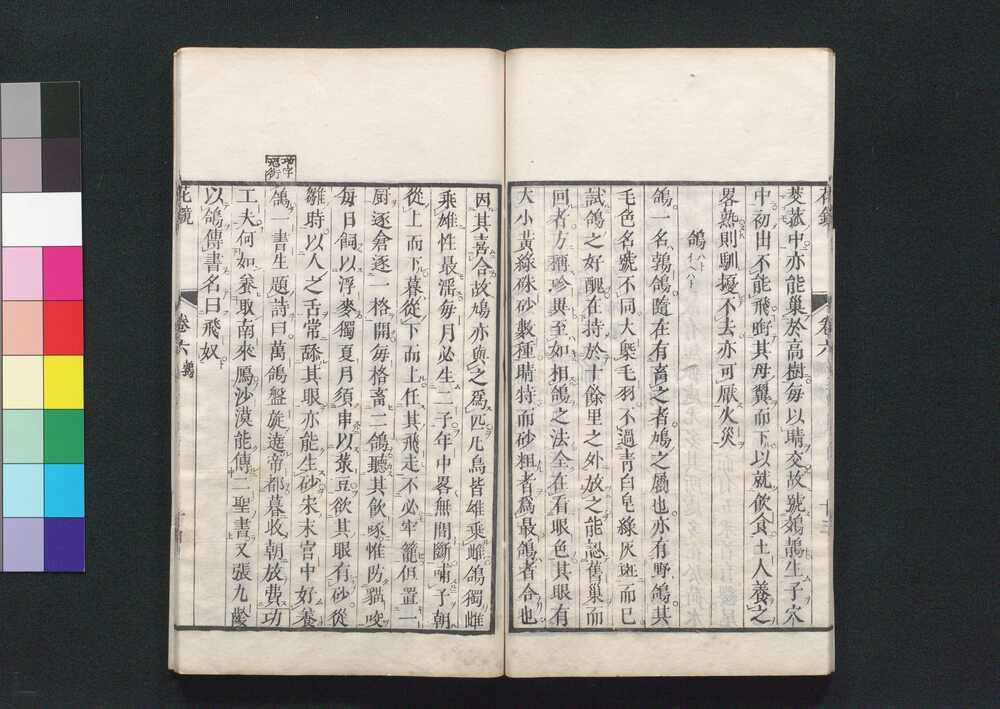 菱菰中亦能巢於高樹每以晴交故號鵁鶄生子穴
中初出不能飛啣其母翼而下以就飲食土人養之
畧熟則馴擾不去亦可厭火災
鴿
鴿一名鵓鴿隨在有畜之者鳩之屬也亦有野鴿其
毛色名號不同大槩毛羽不過靑白皂綠灰斑而已
試鴿之好醜在持於十餘里之外放之能認舊巢而
回者方稱珍異至如相鴿之法全在看眼色其眼有
大小黃綠硃砂數種晴特而砂粗者爲最鴿者合也
花鏡
卷六
因其喜合故鳩亦與之爲匹凡鳥皆雄乘雌鴿獨雌
乘雄性最淫每月必生二子年中畧無間斷哺子朝
從上而下暮從下而上任其飛走不必牢籠但置一
厨逐倉逐一格開每格畜二鴿聽其飲啄惟防貓咬
每日飼以浮麥獨夏月須串以菉豆欲其眼有砂從
雛時以人之舌常舔其眼亦能生砂宋末宮中好養
鴿一書生題詩曰萬鴿盤旋遶帝都暮收朝放費功
工夫何如養取南來鴈沙漠能傳二聖書又張九齡
以鴿傳書名曰飛奴
花鏡
卷六